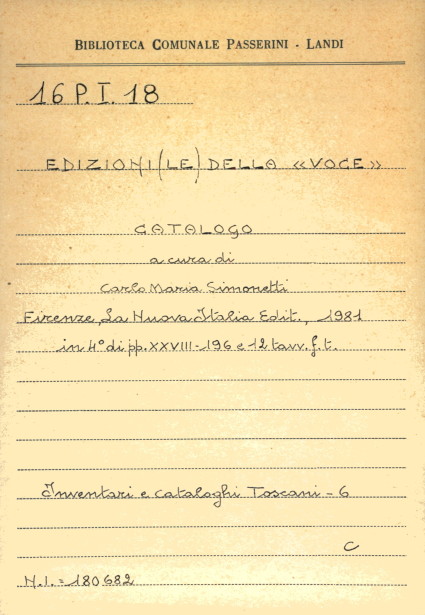 BIBLIOTECA COMUNALE PASSERINI - LANDI
16 P.I. 18
EDIZIONI (LE) DELLA «VOCE»
CATALOGO
a cura di
Carlo Maria Simonetti
Firenze, La Nuova Italia Edit., 1981
in 4° di pp. XXVIII-196 e 12 tavv. f. t.
Inventari e cataloghi Toscani - 6
C
N.I. = 180682